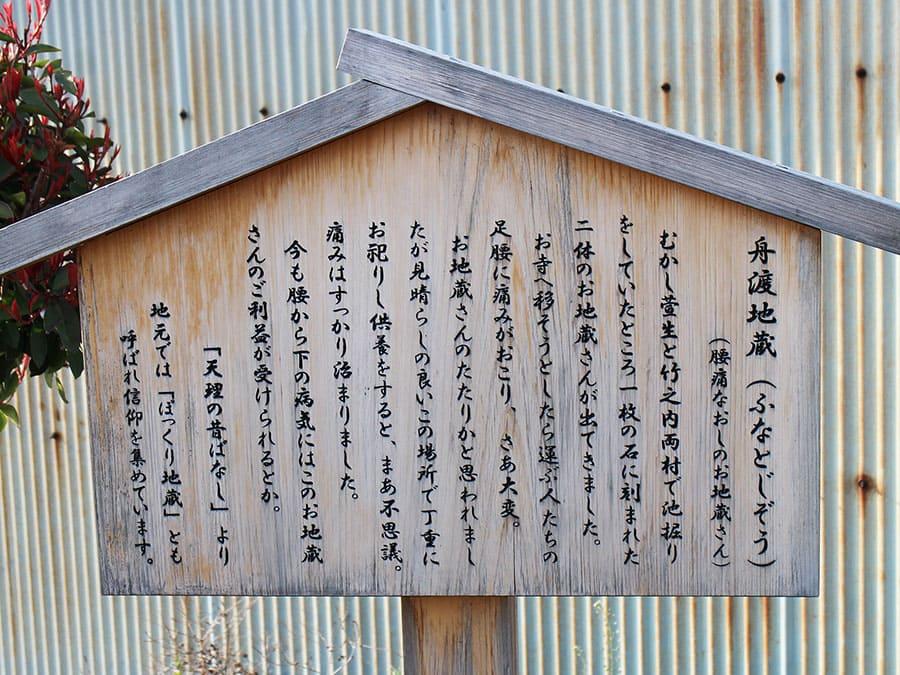 舟渡地蔵(ふなとじぞう)
(腰痛なおしのお地蔵さん)
むかし萱生と竹之内両村で池掘り
をしていたところ一枚の石に刻まれた
二体のお地蔵さんが出てきました。
お寺へ移そうとしたら運ぶ人たちの
足腰に痛みがおこり、さあ大変。
お地蔵さんのたたりかと思われまし
たが見晴らしの良いこの場所で丁重に
お祀りし供養をすると、まあ不思議。
痛みはすっかり治まりました。
今も腰から下の病気にはこのお地蔵
さんのご利益が受けられるとか。
「天理の昔ばなし」より
地元では「ぼっくり地蔵」とも
呼ばれ信仰を集めています。